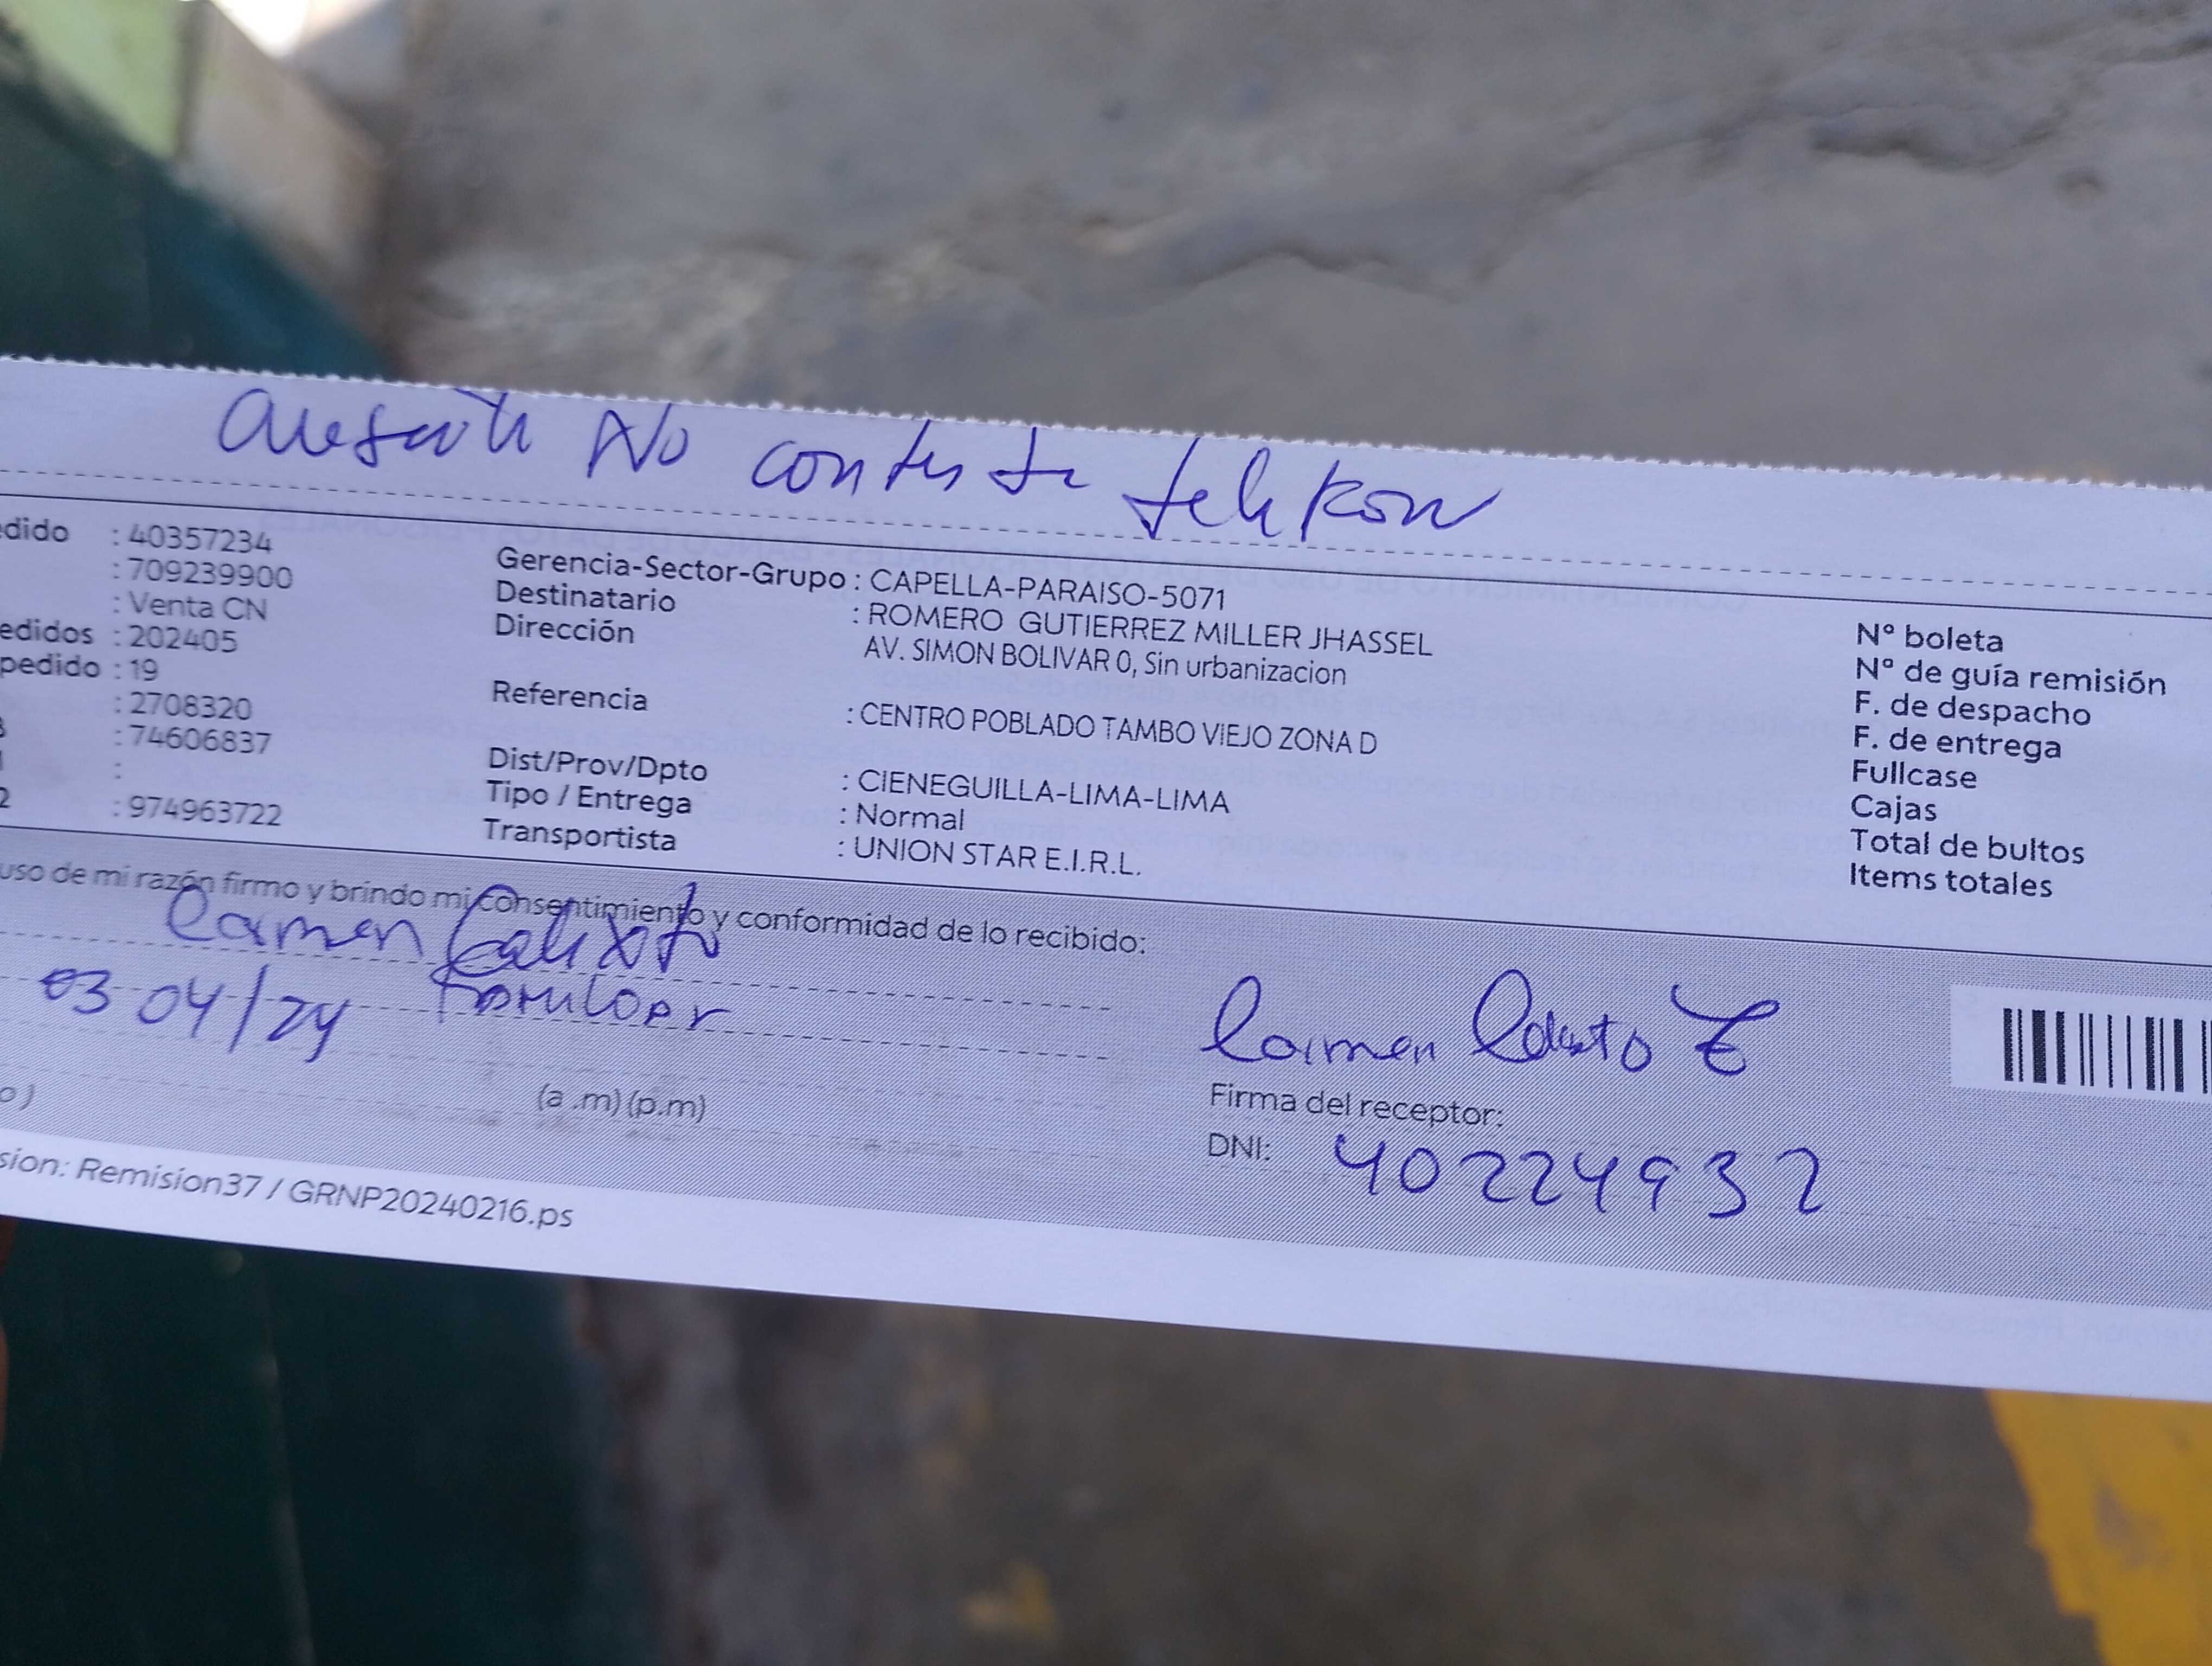 No contesta telefono
edido : 40357234
: 709239900
: Venta CN
edidos : 202405
pedido : 19
: 2708320
: 74606837
:
2 : 974963722
Gerencia-Sector-Grupo : CAPELLA-PARAISO-5071
Destinatario : ROMERO GUTIERREZ MILLER JHASSEL
Dirección AV. SIMON BOLIVAR 0, Sin urbanizacion
Referencia : CENTRO POBLADO TAMBO VIEJO ZONA D
Dist/Prov/Dpto : CIENEGUILLA-LIMA-LIMA
Tipo / Entrega : Normal
Transportista : UNION STAR E.I.R.L.
N° boleta
N° de guía remisión
F. de despacho
F. de entrega
Fullcase
Cajas
Total de bultos
Items totales
uso de mi razón firmo y brindo mi consentimiento y conformidad de lo recibido:
Carmen Calixto
03 04/24
o) (a .m) (p.m)
Carmen Calixto
Firma del receptor:
DNI: 40224932
sion: Remision37 / GRNP20240216.ps